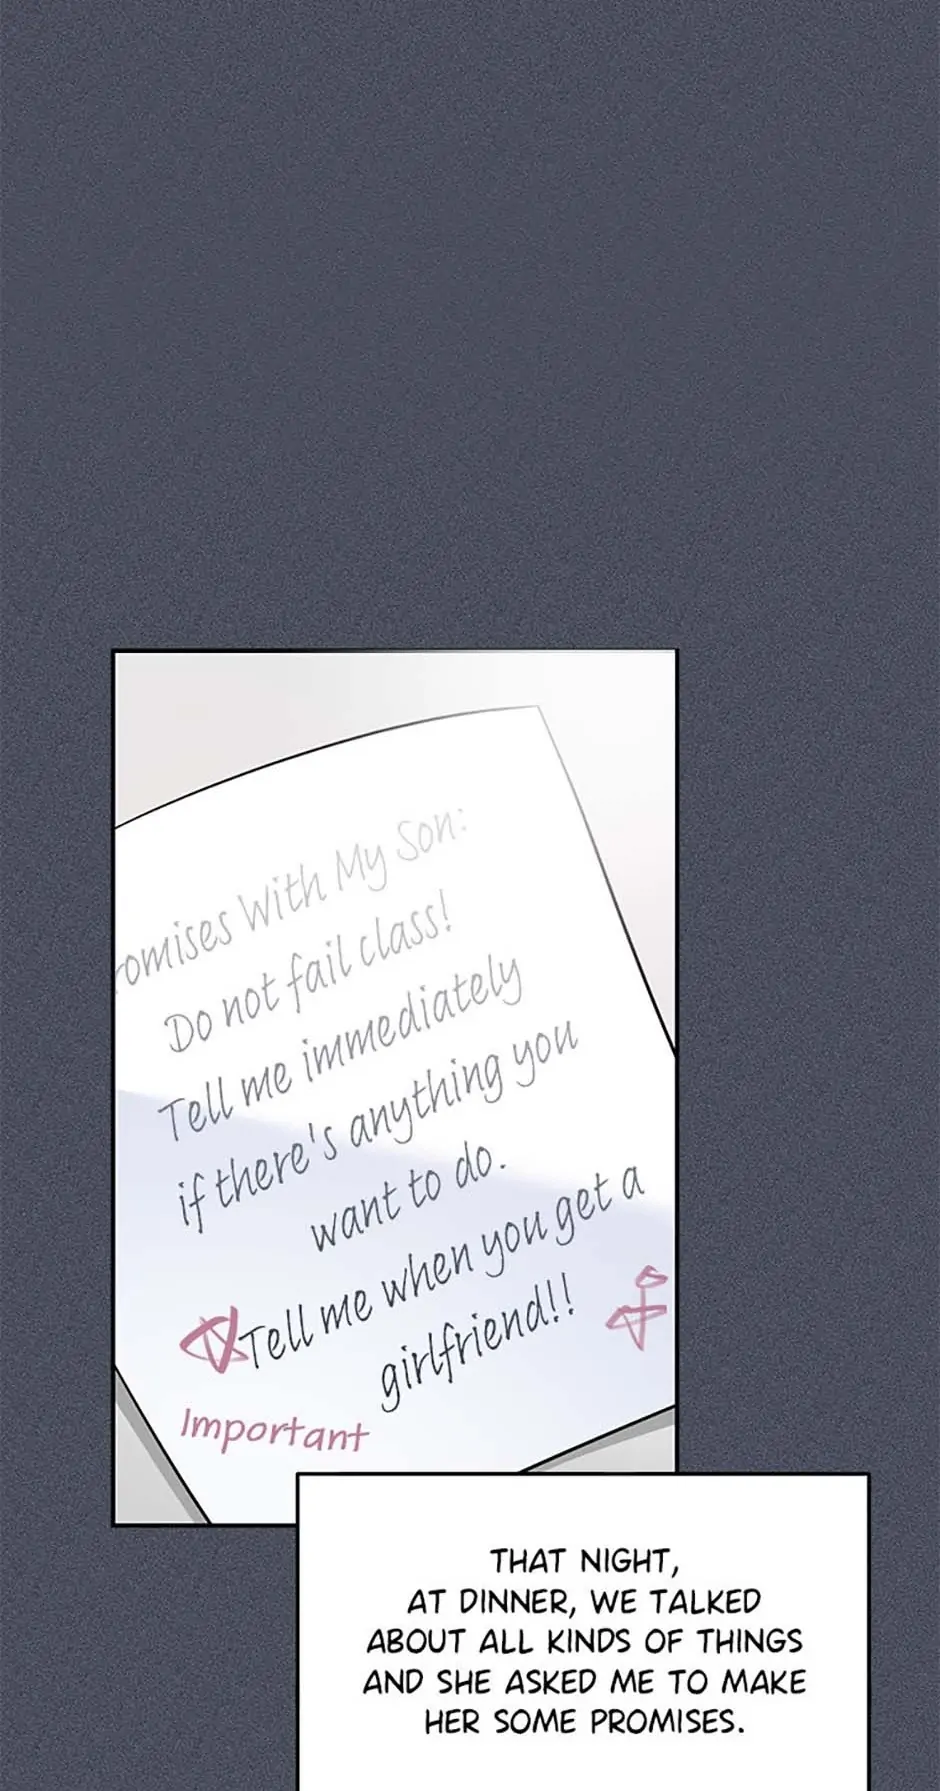 romises With My Son:
Do not fail class!
Tell me immediately
if there's anything you
want to do.
Tell me when you get a
girlfriend!!
Important
THAT NIGHT,
AT DINNER, WE TALKED
ABOUT ALL KINDS OF THINGS
AND SHE ASKED ME TO MAKE
HER SOME PROMISES.